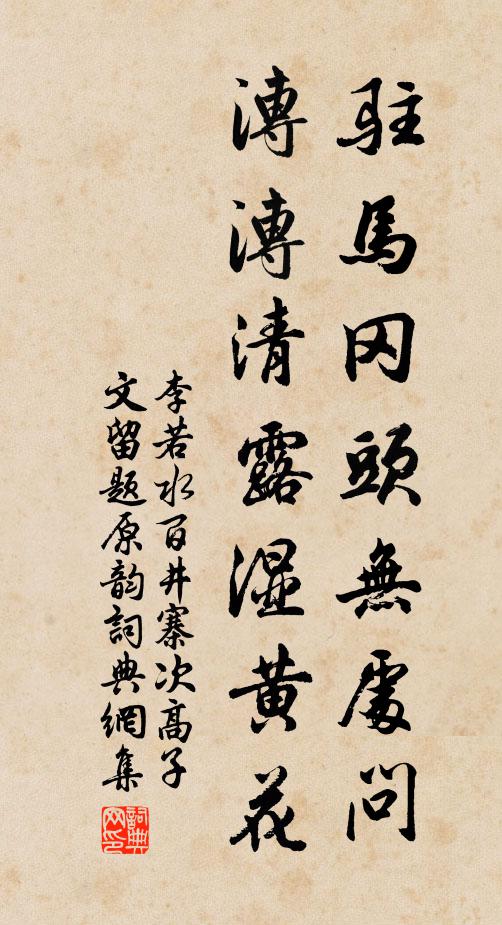 駐馬冈頭無處問
漙漙清露湿黄花
李若水百井寨次高子
文留题原韵詞典網集
詞典網印